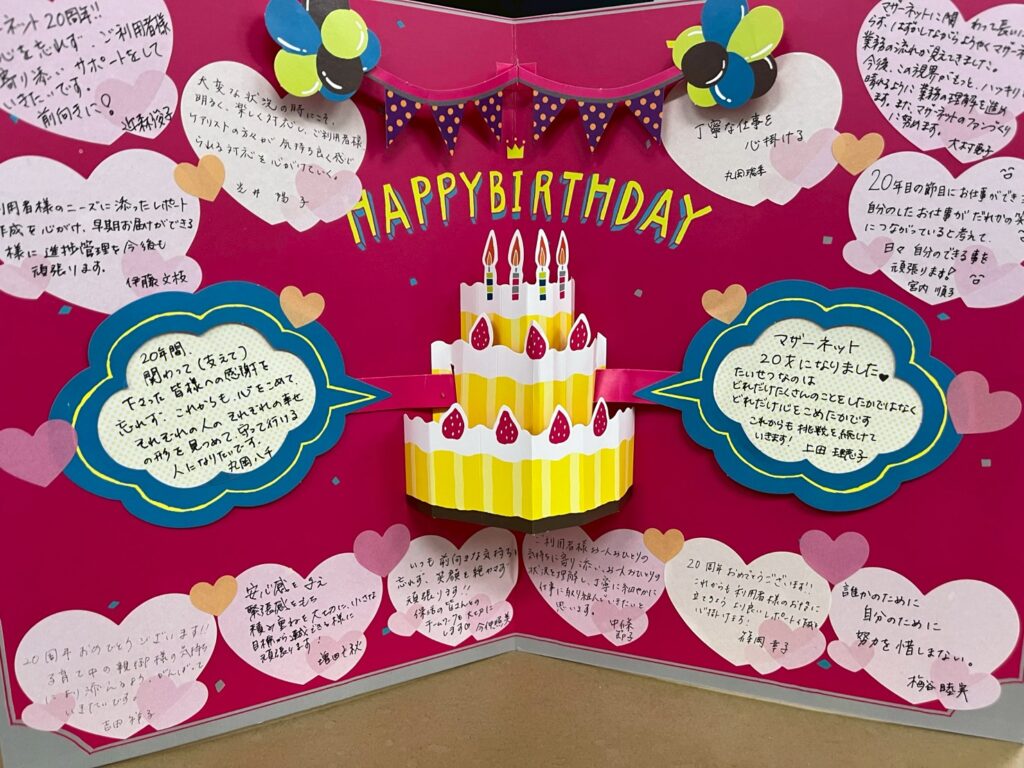 ーネット20周年!!
心を忘れず、ご利用者様
寄り添い サポートをして
いきたいです。
前向きに?
大変な状況の時にこそ、
明るく、楽しく対応し、ご利用者様
ケアリストの方々が気持ち良く感じ
られる対応を心がけていく。
利用者様のニーズに添ったレポート
作成を心がけ、早期お届けができる
様に 進捗管理を今後も
頑張ります。
伊藤 文枝
HAPPYBIRTHDAY
丁寧な仕事を
心掛ける
マザーネットに関わって長いに
業務の流れが見えてきました。
今後、この視界がもっと、ハッキリ
晴れるように 業務の理解を進め
ます。また、マザーネットのファンづくり
に努めます。
20年目の節目にお仕事ができ
自分のしたお仕事がだれかの笑
につながっていると考えて、
日々 自分のできる事を
頑張ります!
宮内 順子
20年間、
関わって(支えて)
下さった 皆様への感謝を
忘れず、これからも、心をこめて、
それぞれの人の それぞれの幸せ
の形を見つめて、守って行ける
人になりたいです。
丸岡 八千
マザーネット
20才になりました♥
たいせつなのは
どれだけたくさんのことをしたかではなく
どれだけ心をこめたかです
これからも 挑戦を続けて
いきます!
上田 理恵子
20周年おめでとうございます!!
子育て中の親御様の気持ち
により添えるよう、がんばって
いきたいです。
安心感を与え
緊張感をもち
積み重ねを大切に、小さな
目標から達成できる様に
頑張ります!
いつも前向きな気持ちを
忘れず、笑顔を絶やさず
頑張ります!
チームワークも大切に
します
ご利用者様お一人おひとりの
気持ちに寄り添い、お一人おひとりの
状況を理解し、丁寧に細やかに
仕事に取り組んでいきたいと
思います。
20周年おめでとうございます!!
これからも利用者様のお役に
立てるよう より良いレポート作成を
心掛けます!
篠岡 幸子
誰かのために
自分のために
努力を惜しまない。
梅谷 睦実